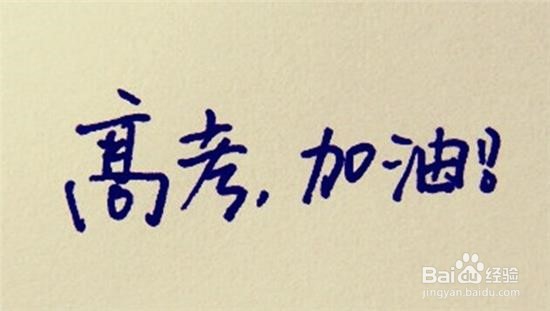 高考，加油!!
Baidu 经验
jingyan.baidu.com